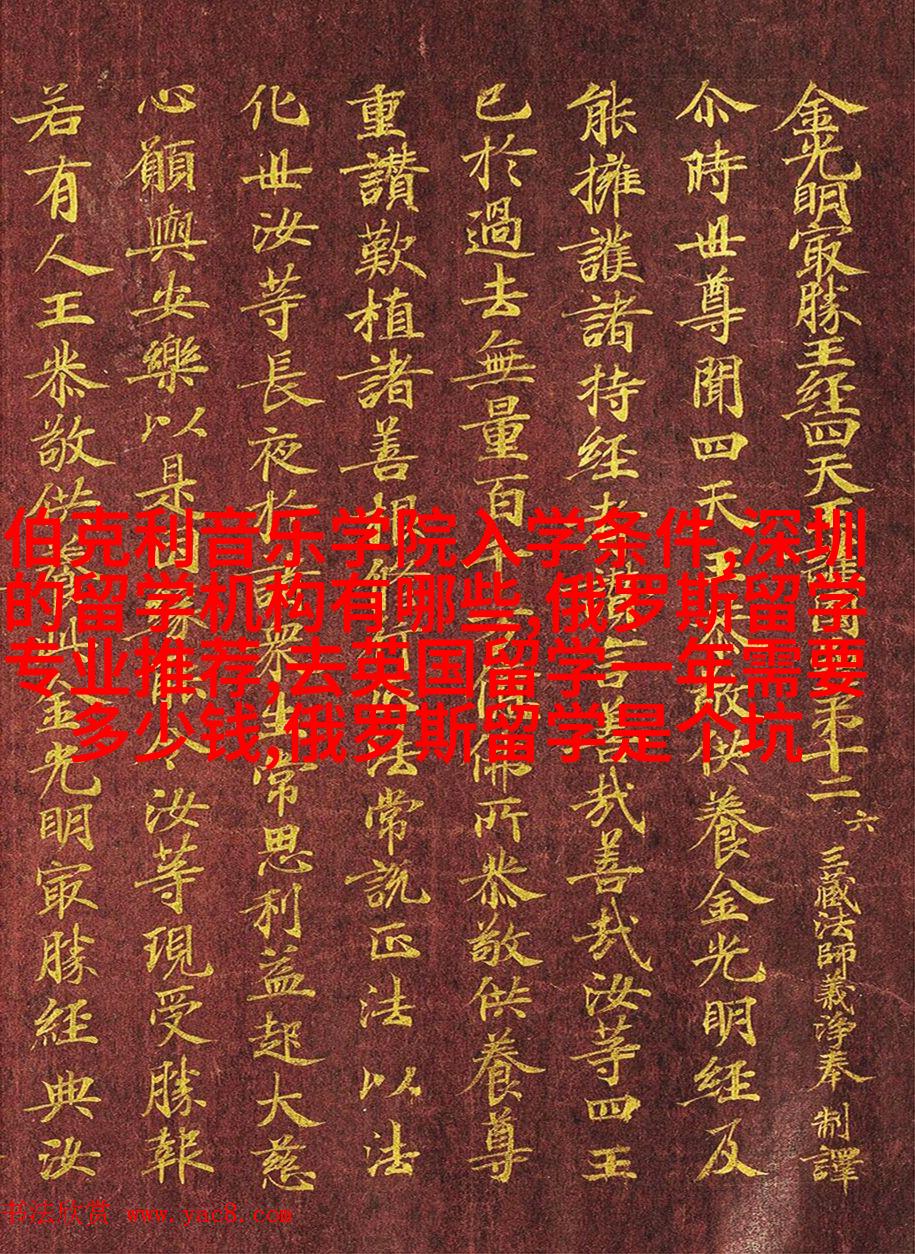 金光明冣勝王經四天王護國品第十二 六 三藏法師義淨奉 制譯
尒時世尊聞四天王恭敬供養金光明經及
能擁護諸持經者讚言善哉善哉汝等四王
已於過去無量百千万億佛所恭敬供養尊
重讚歎植諸善根修行正法常說正法以法
化世汝等長夜於諸衆生常思利益起大慈
心願與安樂以是因緣能令汝等現受勝報
若有人王恭敬供養此金光明冣勝經典汝
伯克利音乐学院入学条件,深圳
的留学机构有哪些,俄罗斯留学
专业推荐,去英国留学一年需要
多少钱,俄罗斯留学是个坑
书法欣赏 www.yac8.com